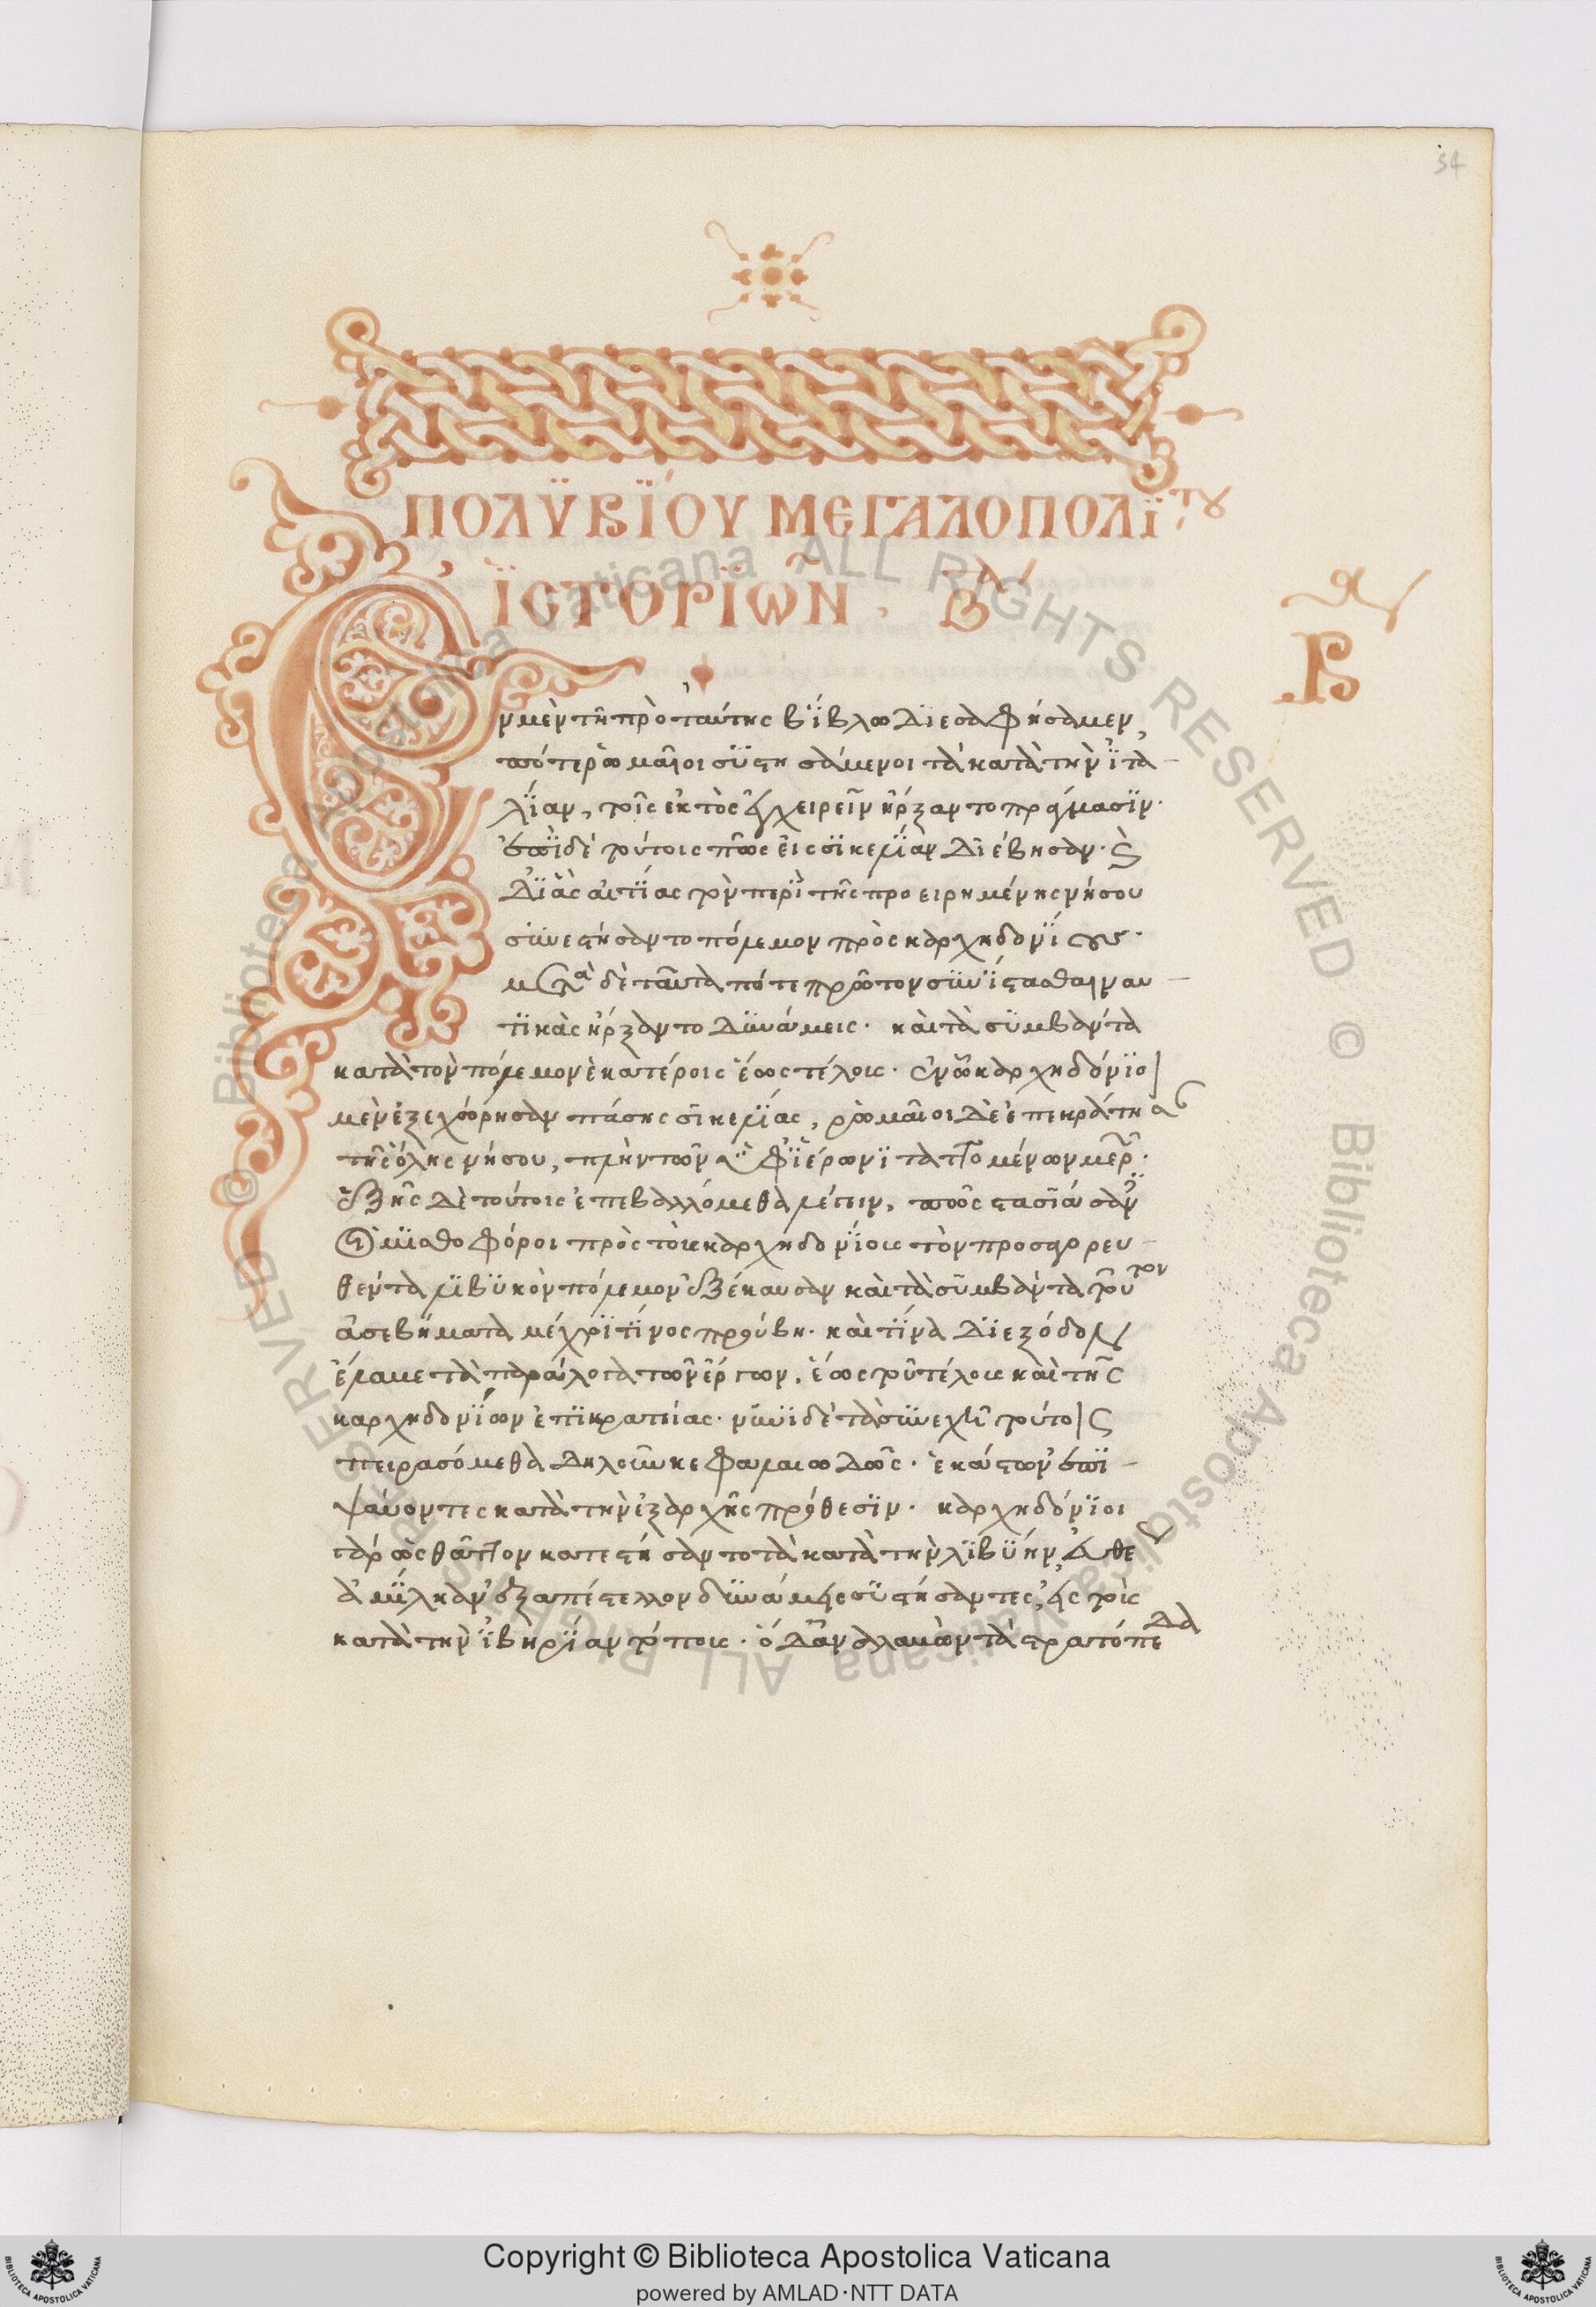 54
ΠΟΛΥΒΪΟΥ ΜΕΓΑΛΟΠΟΛΪτου
ἹΣΤΟΡΪΩ͂Ν. Β
Β
Ἐν μὲν τῆ πρὸ ταύτης βΐβλω διεσαφήσαμεν,
πότε ῥωμαῖοι συστησάμενοι τὰ κατὰ τὴν ϊτα-
λΐαν, τοῖς ἐκτὸς ἐγχειρεῖν ἤρξαντο πράγμασϊν.
ἐπϊ δὲ τούτοις πῶς εἰς σϊκελΐαν διέβησαν. καὶ
δϊ ἃς αἰτΐας τὸν περϊ τῆς προειρημένης νήσου
συνεστήσαντο πόλεμον πρὸς καρχηδονΐους.
μετὰ δὲ ταῦτα πότε πρῶτον συνΐστασθαι ναυ-
τϊκὰς ἤρξαντο δυνάμεις. καὶ τὰ συμβάντα
κατὰ τὸν πόλεμον ἑκατέροις ἕως τέλους. ἐν ὧ καρχηδόνϊοι
μὲν ἐξεχώρησαν πάσης σϊκελΐας, ῥωμαῖοι δὲ ἐπεκράτησαν
τῆς ὅλης νήσου, πλὴν τῶν ὑφ ϊέρωνϊ ταττομένων μερῶν.
ἑξῆς δὲ τούτοις ἐπεβαλλόμεθα λέγειν, πῶς στασϊάσαντες
οἱ μϊσθοφόροι πρὸς τοὺς καρχηδονΐους τὸν προσαγορευ-
θέντα λϊβυκὸν πόλεμον ἐξέκαυσαν καὶ τὰ συμβάντα τούτον
ἀσεβήματα μέχρϊ τΐνος προύβη. καὶ τΐνα δϊεξόδον
ἔλαβε τὰ παράλογα τῶν ἔργων, ἕως τοῦ τέλους καὶ τῆς
καρχηδονΐων ἐπϊκρατείας. νυνϊ δὲ τὰ συνεχῆ τούτοις
πειρασόμεθα δηλοῦν κεφαλαιωδῶς. ἑκάστων ἐπϊ-
ψαύοντες κατὰ τὴν ἐξ ἀρχῆς πρόθεσϊν. καρχηδόνϊοι
γὰρ ὡς θᾶττον κατεστήσαντο τὰ κατὰ τὴν λϊβύην, εὐθέως
ἀμΐλκαν ἐξαπέστελλον δυνάμεις συστήσαντες, εἰς τοὺς
κατὰ τὴν ϊβηρΐαν τόπους. ὁ δ ἀναλαβὼν τὰ στρατόπεδα
Copyright © Biblioteca Apostolica Vaticana
powered by AMLAD·NTT DATA
© Biblioteca Apostolica Vaticana ALL RIGHTS RESERVED © Biblioteca Apostolica Vaticana ALL RIGHTS RESERVED